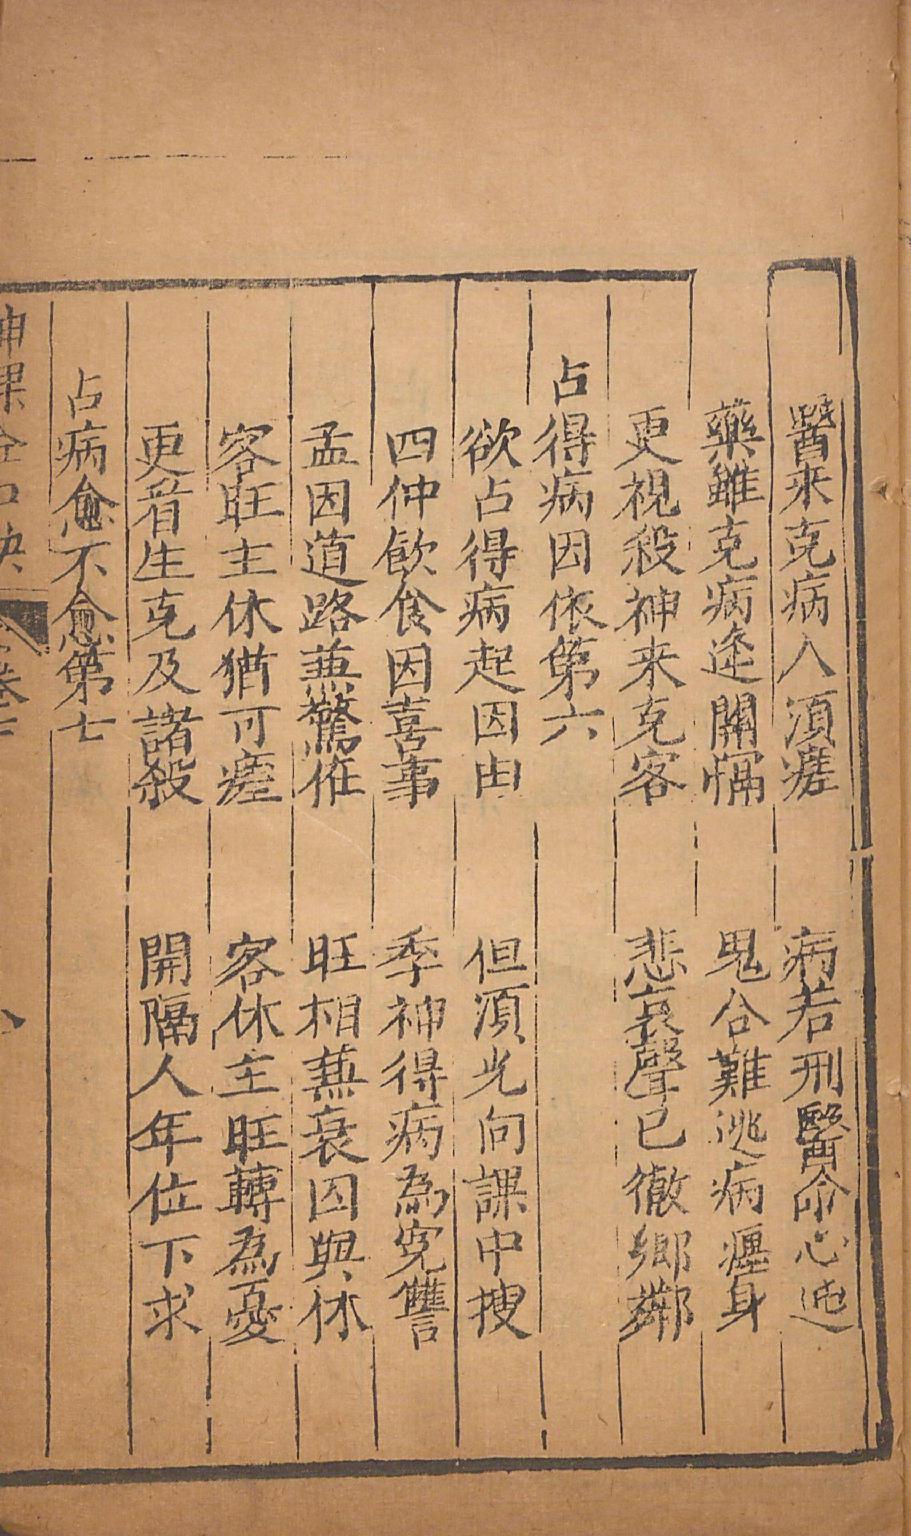 醫来克病人須瘥　病若刑醫命必迍
藥雖克病逢關隔　鬼合難逃病瘞身
更視殺神来克客　悲哀聲已徹鄉鄰
占得病因依第六
欲占得病起因由　但須先向課中搜
四仲飲食因喜事　季神得病為寃讐
孟因道路兼驚恠　旺相兼衰囚與休
客旺主休猶可瘥　客休主旺轉為憂
更看生克及諸殺　開隔人年位下求
占病愈不愈第七
神課金口訣　卷六
八